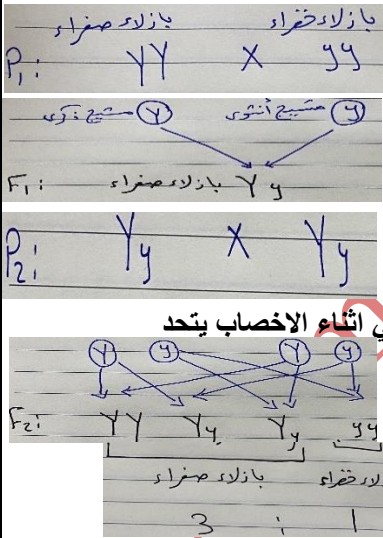 بازلاء خضراء بازلاء صفراء
P1: YY X yy
مشيج أنثوي y مشيج ذكري Y
F1: بازلاء صفراء Yy
P2: Yy X Yy
ي اثناء الاخصاب يتحد
Y y Y y
F2: YY Yy Yy yy
بازلاء صفراء لاء خضراء
3 : 1